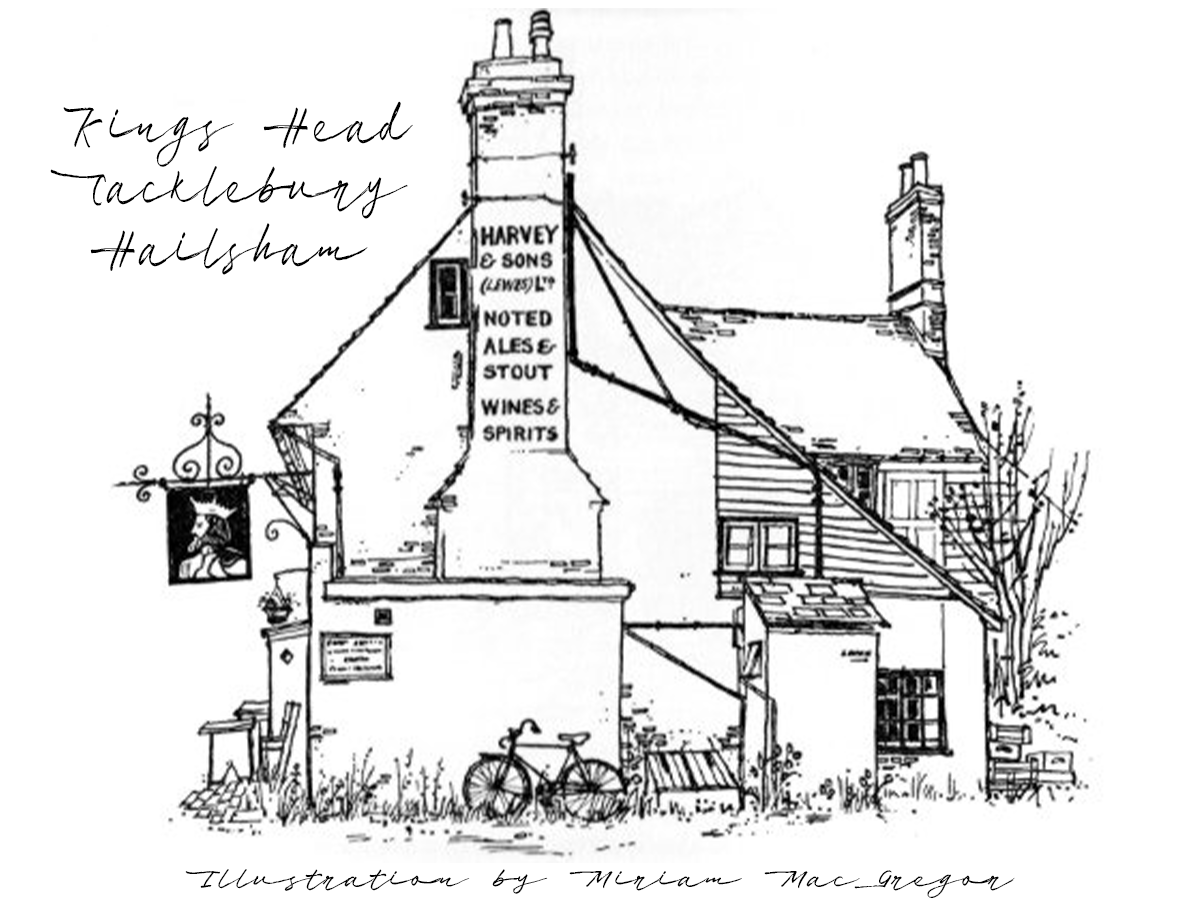 Kings Head
Tacklebury
Hailsham
HARVEY
& SONS
(LEWES) LTD
NOTED
ALES &
STOUT
WINES &
SPIRITS
Illustration by Miriam Mac_Gregor